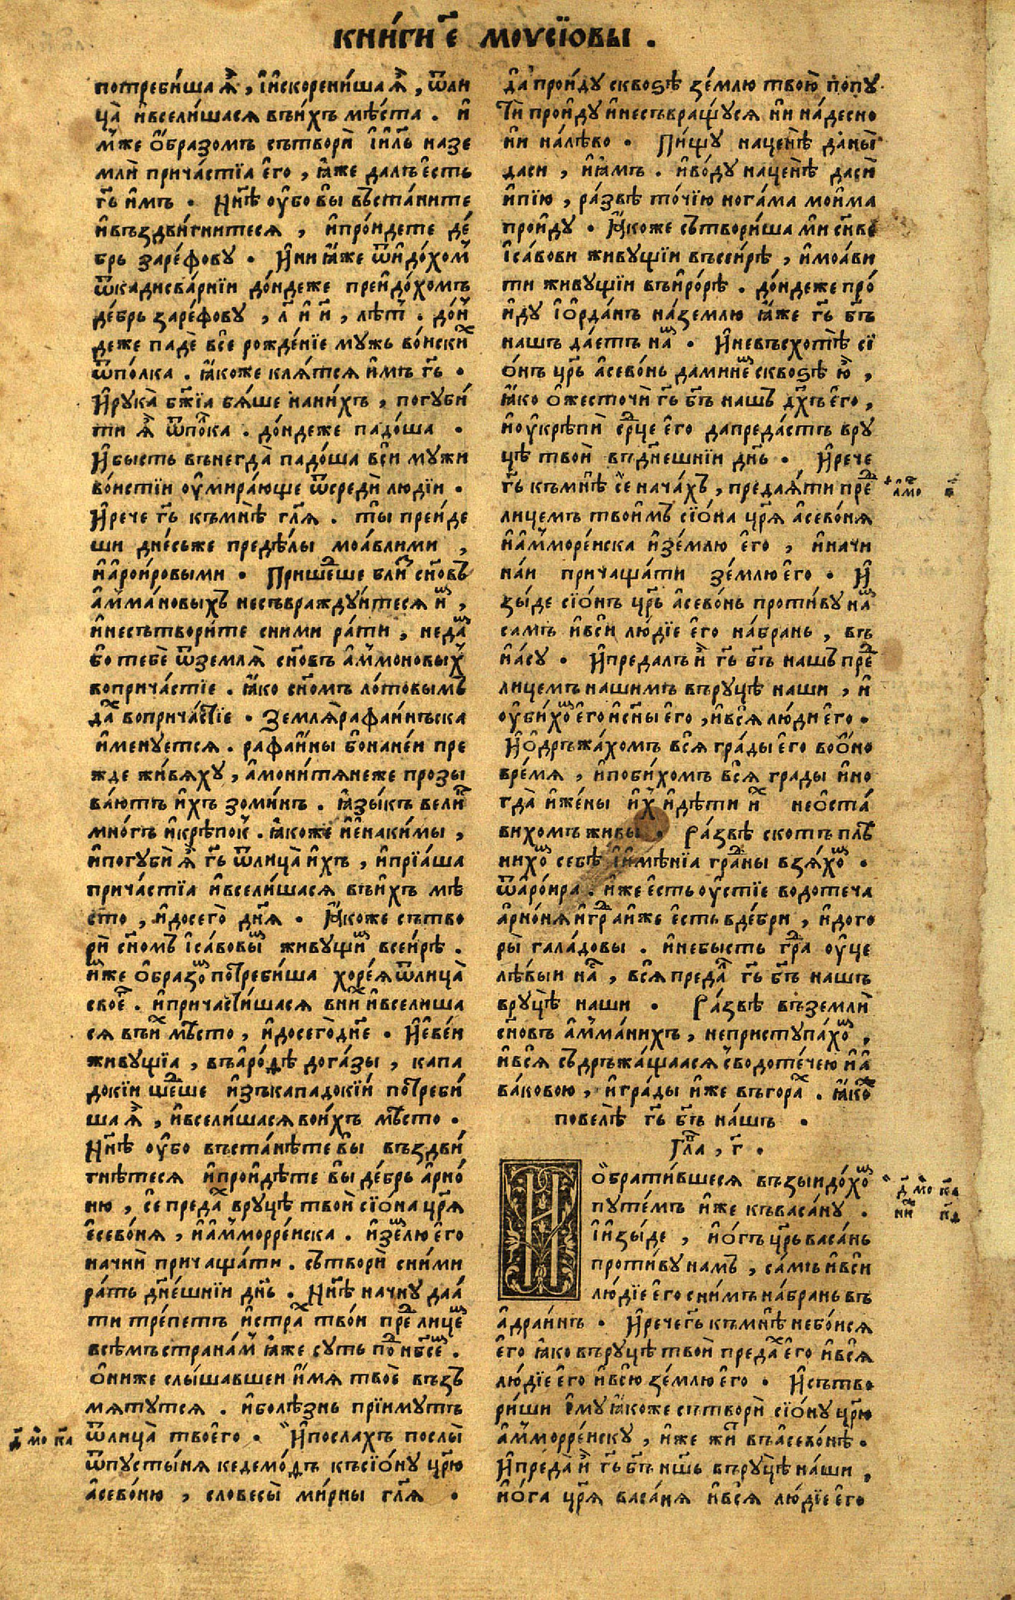 книги е҃ моусїѡвы .
потребиша ѧ҆̀ , ѝ искорениша ѧ҆̀ , ѿ ли
ца̀ и҆вселишася въ ихъ мѣста . и҆
мже ѻ҆бразомъ сътвори і҆и҃ль назе
мли причастїа его , ꙗ҆же далъ есть
гь҃ и҆мъ . Ны҃нѣ оу҆бо вы въстаните
и҆въздвигнитеся , и҆проидете де
брь зарефову . И҆дни ꙗ҆же ѿидохом
ѿкадисварнїи дондеже преидохомъ
дебрь зарефову , л҃ и҆ и҃ , лѣт . дон
деже паде все рожденїе мужь воиских
ѿполка . ꙗ҆коже клятся и҆мъ гь҃ .
И҆рука бж҃їа бяше наних , погуби
ти ѧ҆̀ ѿполка . дондеже падоша .
И҆бысть вънегда падоша вси мужи
воистїи оу҆мирающе ѿсреди людїи .
И҆рече гь҃ къмнѣ гл҃я . ты преиде
ши днесьже предѣлы моавлими ,
и҆ароировыми . Пришедше близ сн҃овъ
а҆ммановыхъ несъвраждуитеся им ,
и҆несътворите сними рати , недам
бо тебе ѿземля сн҃овъ а҆ммоновых
вопричастїе . ꙗ҆ко сн҃омъ лотовымъ
дах вопричастїе . Земля рафаинъска
и҆менуется . рафаины бонанеи пре
жде живяху , а҆монитянеже прозы
вають и҆хъ зоминъ . ꙗ҆зыкъ велик
многъ и҆крѣпок . ꙗ҆коже и҆енакимы ,
и҆погуби ѧ҆̀ гь҃ ѿлица и҆хъ , и҆прїаша
причастїа и҆вселишася въ ихъ мѣ
сто , и҆досего дн҃я . ꙗ҆коже сътво
ри сн҃омъ і҆савовым живущим всеирѣ .
и҆мже ѻ҆бразом потребиша хорея ѿлица
своего . и҆причастишася вних и҆вселиша
ся въ их мѣсто , и҆досего дн҃е . И҆евеи
живущїа , въ ародѣ догазы , капа
докїи шедше и҆зъкападокїи потреби
ша ѧ҆̀ , и҆вселишася воихъ мѣсто .
Ны҃нѣ оу҆бо въстанѣте вы въздви
гнѣтеся и҆проидѣте вы дебрь а҆рно
ню , се предах вруцѣ твои сїона цр҃я
е҆севоня , и҆а҆мморренска . и҆землю его
начни причащати . сътвори сними
рать дн҃ешнїи дн҃ь . Ны҃нѣ начну даа
ти трепетъ и҆страх твои пред лицем
всѣмъ странам ꙗ҆же суть под нб҃сем .
ѻ҆ниже слышавшеи и҆мя твое възъ
мятутся . и҆болѣзнь прїимутъ
ѿлица твоего . И҆послахъ послы
ѿпустыня кедемодъ къ сїону цр҃ю
а҆севоню , словесы мирны гл҃я .
да проиду сквоѕѣ землю твою попу
ти проиду и҆несъвращуся ни надесно
ни налѣво . Пищу нацѣнѣ даны
даси , и҆ꙗ҆мъ . и҆воду нацѣнѣ даси
и҆пїю , развѣ точїю ногама моима
проиду . ꙗ҆коже сътвориша ми сн҃ве
і҆савови живущїи въсеирѣ , и҆моави
ти живущїи въ ирорѣ . дондеже про
и҆ду і҆орданъ на землю ꙗ҆же гь҃ бг҃ъ
нашъ даетъ нам . И҆невъсхотѣ сї
онъ цр҃ь а҆севонь даминем сквоѕѣ ю҆ ,
ꙗ҆ко ѻ҆жесточи гь҃ бг҃ъ нашъ дх҃ъ его ,
и҆оу҆крѣпи ср҃це его дапредастъ вру
цѣ твои въ дн҃ешнїи дн҃ь . И҆рече
гь҃ къмнѣ се начахъ , предаяти пред
лицемъ твоимъ сїона цр҃я а҆севоня
и҆а҆мморенска и҆землю его , и҆начи
наи причащати землю его . И҆
зыде сїонъ цр҃ь а҆севонь противу нам
самъ и҆вси людїе его набрань , въ
и҆асу . И҆предалъ и҆̀ гь҃ бг҃ъ нашъ пред
лицемъ нашимъ въ руцѣ наши , и҆
оу҆бихом его и҆сн҃ы его , и҆вся люди его .
И҆ѻ҆дръжахомъ вся грады его воѻ҆но
время , и҆побихомъ вся грады и҆но
гда и҆жены их и҆дѣти их неѻ҆ста
вихомъ живы . Развѣ скотъ плѣ
нихом себѣ и҆и҆мѣнїа градны взяхом .
ѿ ароира . и҆же есть оу҆стїе водотеча
а҆рноня и҆град и҆же есть вдебри , и҆до го
ры галадовы . и҆небысть град оу҆це
лѣвыи нас , вся предал гь҃ бг҃ъ нашъ
вруцѣ наши . Развѣ въ земли
сн҃овъ а҆мманихъ , неприступахом ,
и҆вся съдръжащаася сводотечею и҆а
ваковою , и҆грады и҆же въгорах . ꙗ҆коже
повелѣ гь҃ бг҃ъ нашъ .
Глава , г҃ .
И ѻбратившеся възыидохом
путемъ и҆же къвасану .
і҆изыде , и҆огъ цр҃ь васань
противу намъ , самъ и҆вси
людїе его снимъ набрань въ
а҆драинъ . И҆рече гь҃ къмнѣ небоися
его ꙗ҆ко въ руцѣ твои предах его и҆вся
людїе его и҆всю землю его . И҆сътво
риши ему ꙗ҆коже сътвори сїону цр҃ю
а҆мморренску , и҆же жил въ асевонѣ .
И҆преда и҆̀ гь҃ бг҃ъ нш҃ъ въ руцѣ наши ,
и҆ога цр҃я васаня и҆вся людїе его